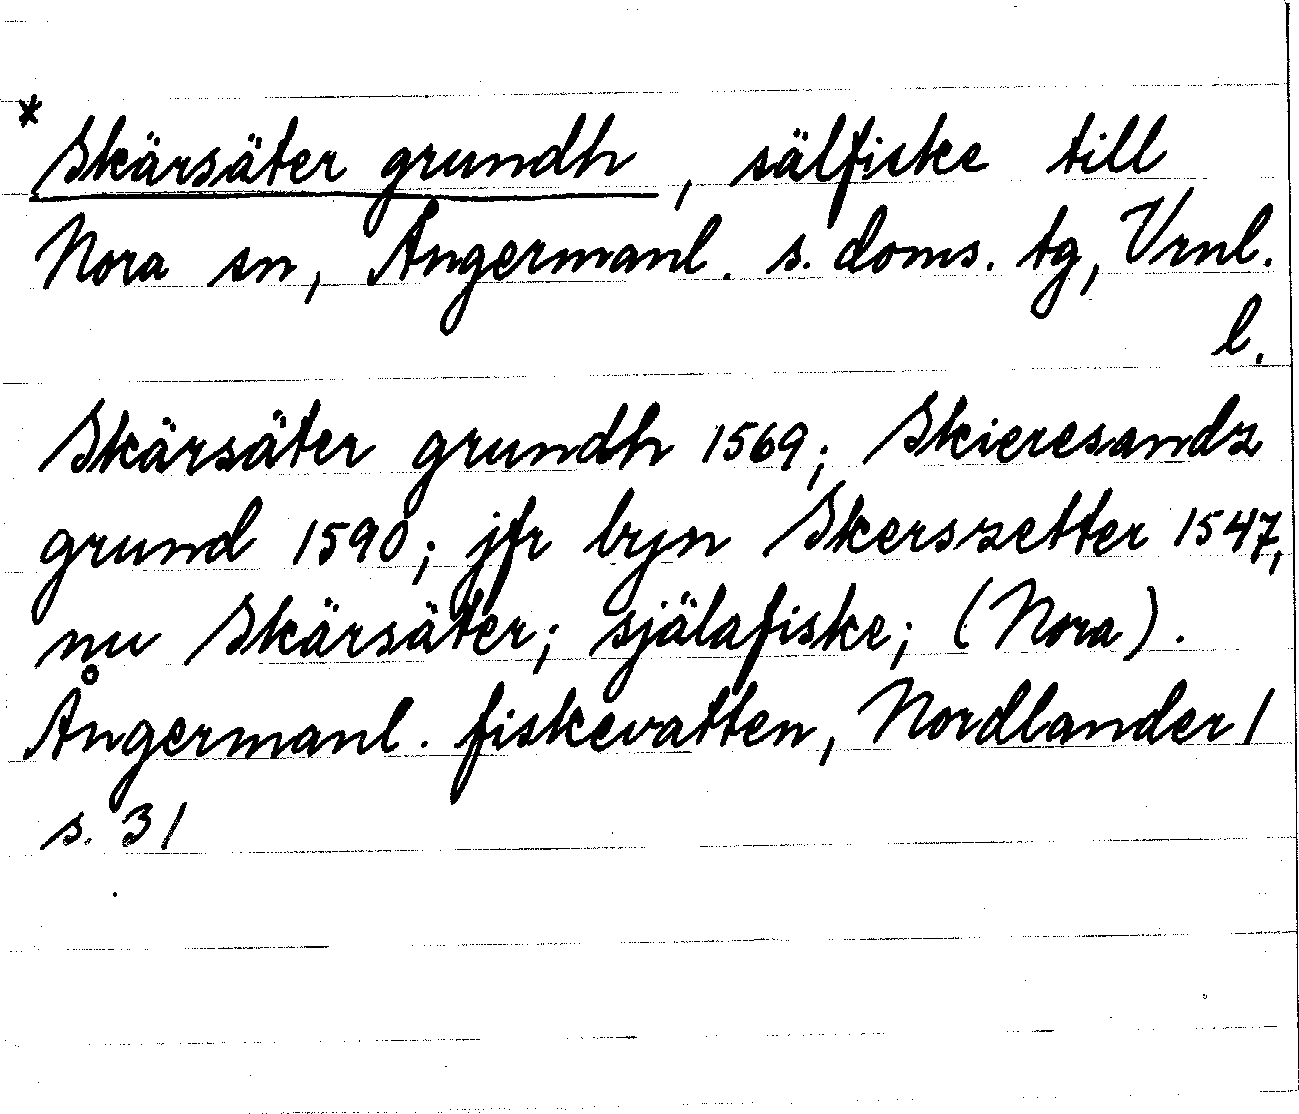 * Skärsäter grundh, sälfiske till
Nora sn, Ångermanl. s. doms. tg, Vrnl.
l.
Skärsäter grundh 1569; Skieresandz
grund 1590; jfr byn Skerszetter 1547,
nu Skärsäter; själafiske; (Nora).
Ångermanl. fiskevatten, Nordlander 1
s. 31